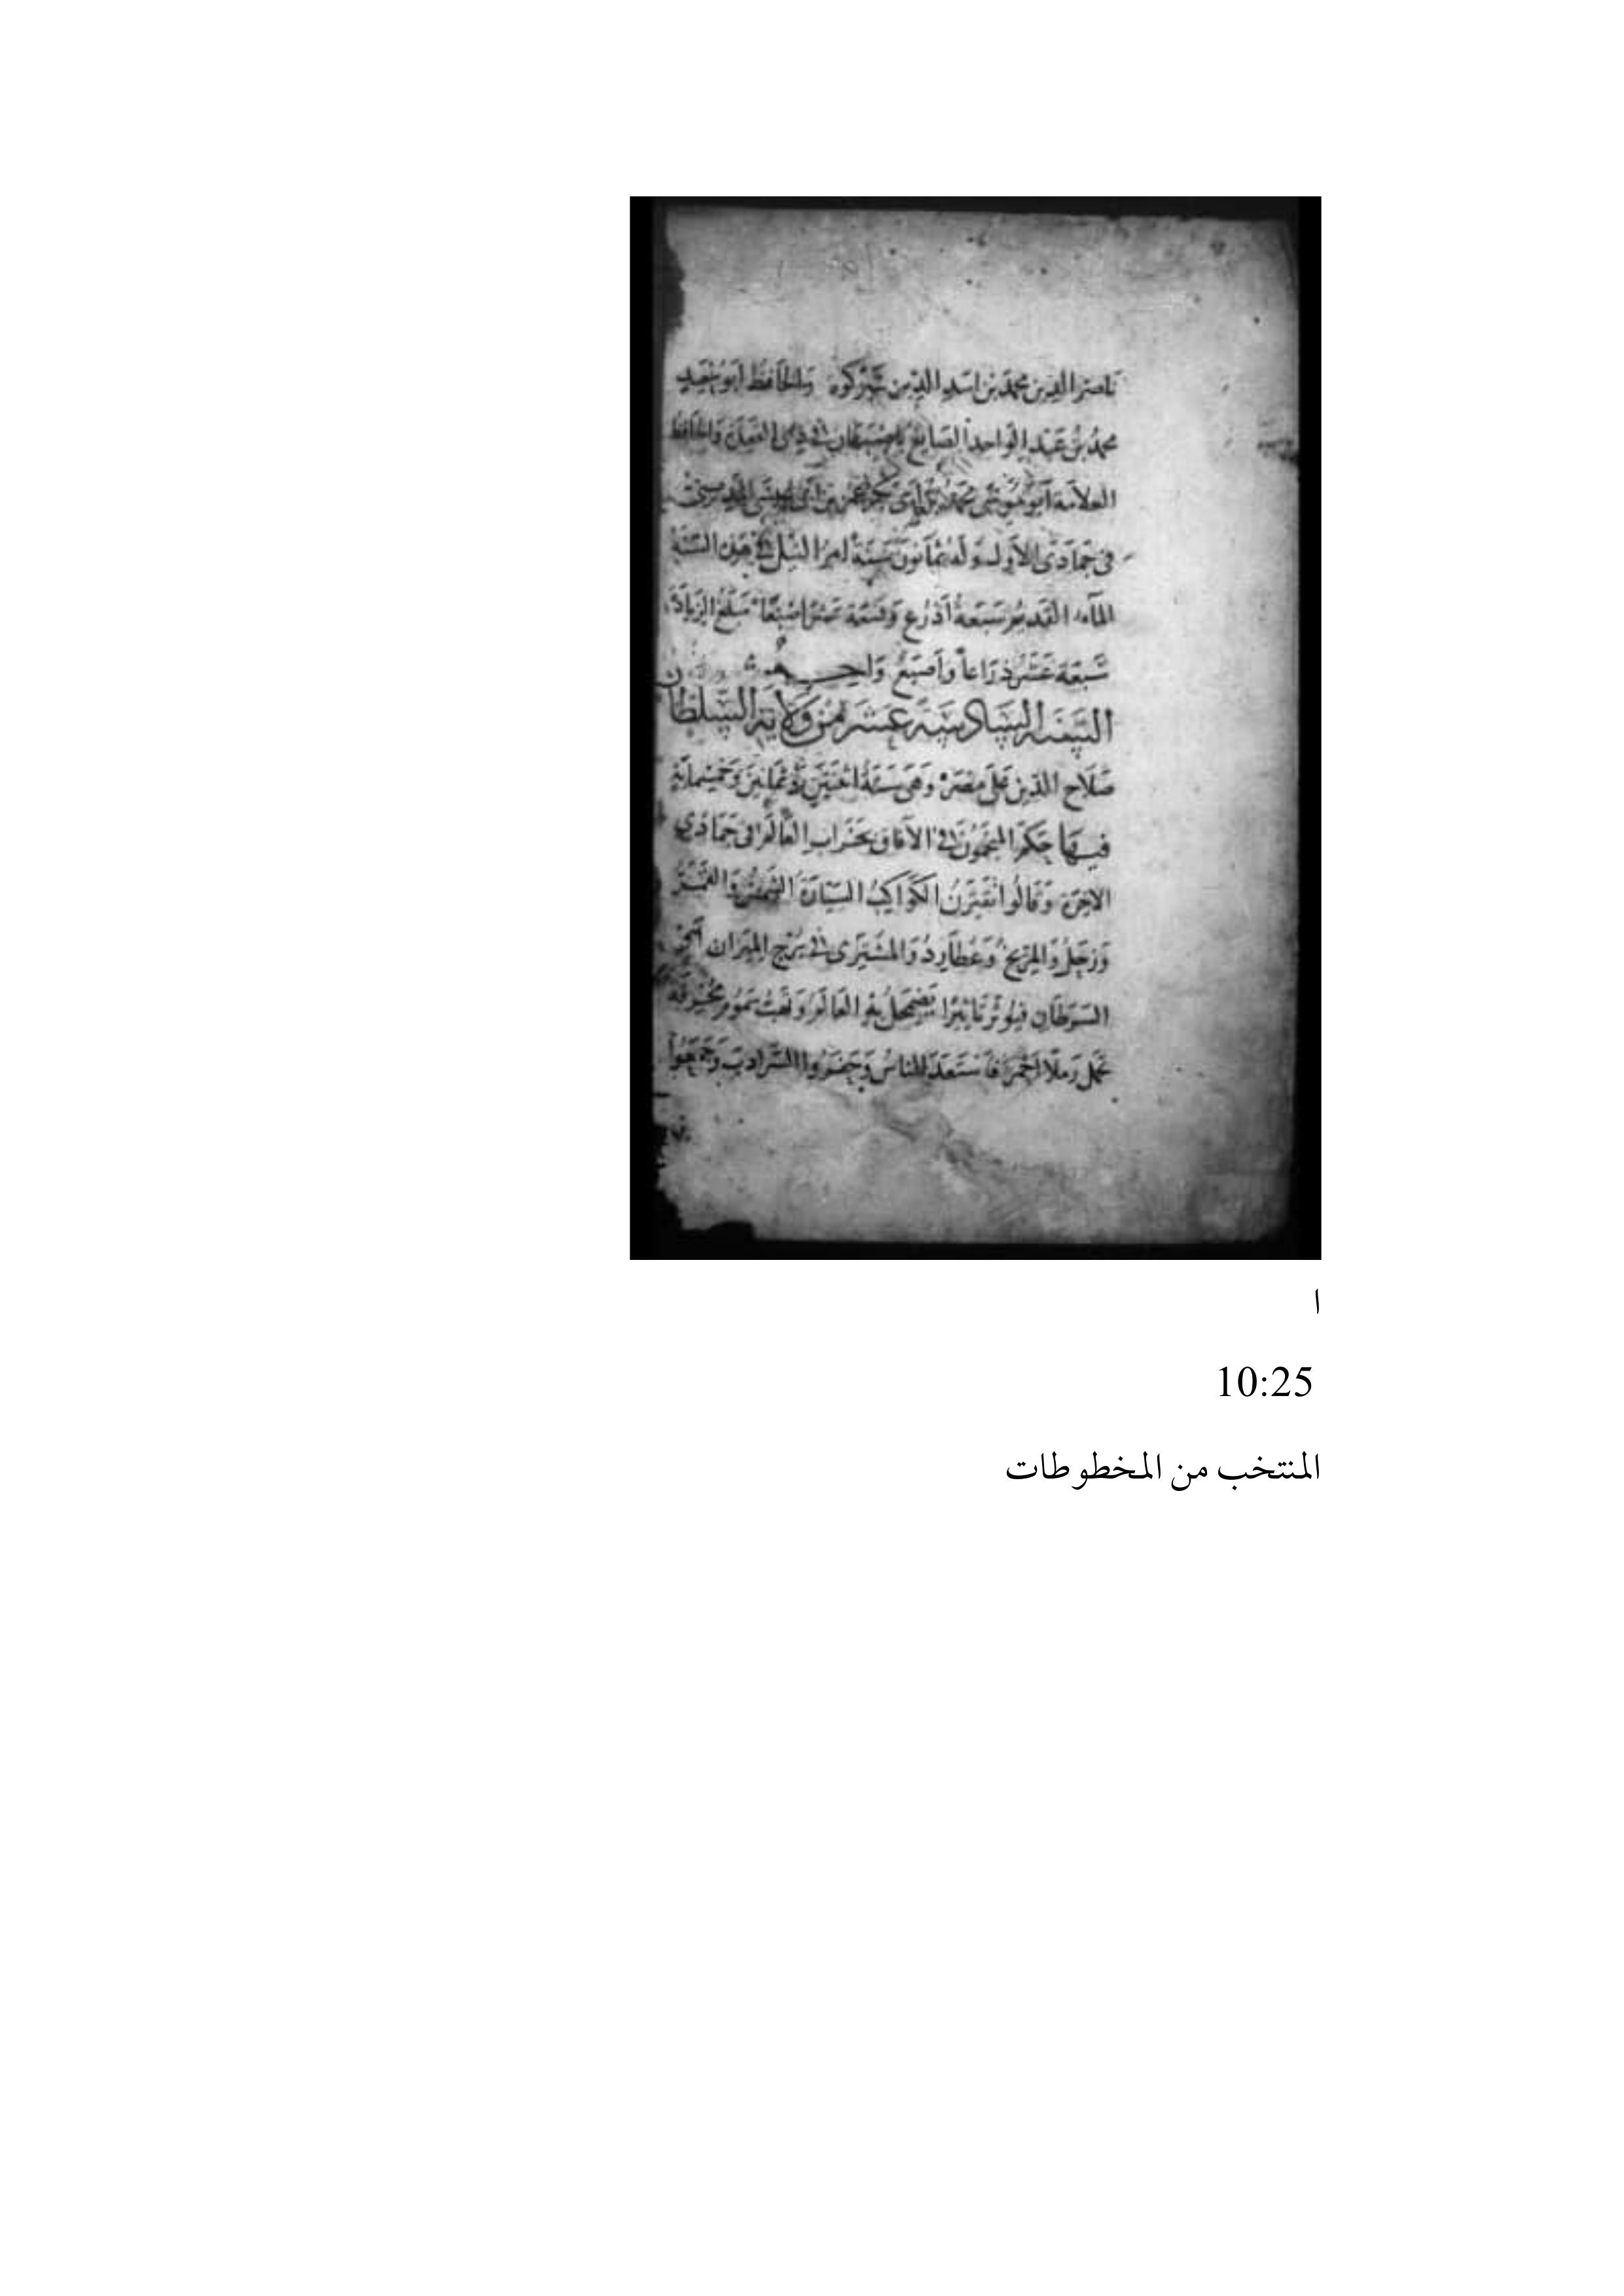 ناصر الدين محمد بن اسد الدين شيركوه والحافظ ابو سعيد
محمد بن عبد الواحد الصايغ باصبهان في ذي القعدة والحافظ
العلامة ابو موسى محمد بن ابي بكر عمر بن ابي عيسى المديني
في جمادى الاولى وله ثمانون سنة امر النيل في هذه السنة
الماء القديم سبعة أذرع وتسعة عشر اصبعا مبلغ الزيادة
سبعة عشر ذراعا وأصبع واحد
السنة السادسة عشر من ولاية السلطان
صلاح الدين على مصر وهي سنة اثنتين وثمانين وخمسمائة
فيها حكم المنجمون في الآفاق بخراب العالم في جمادي
الاخرة وقالوا تقترن الكواكب السيارة الشمس والقمر
وزحل والمريخ وعطارد والمشتري في برج الميزان
السرطان فيؤثر تاثيرا يضمحل به العالم وتهب سموم محرقة
تحمل رملا احمر فاستعد الناس وحفروا السراديب وجمعوا
ا
10:25
المنتخب من المخطوطات